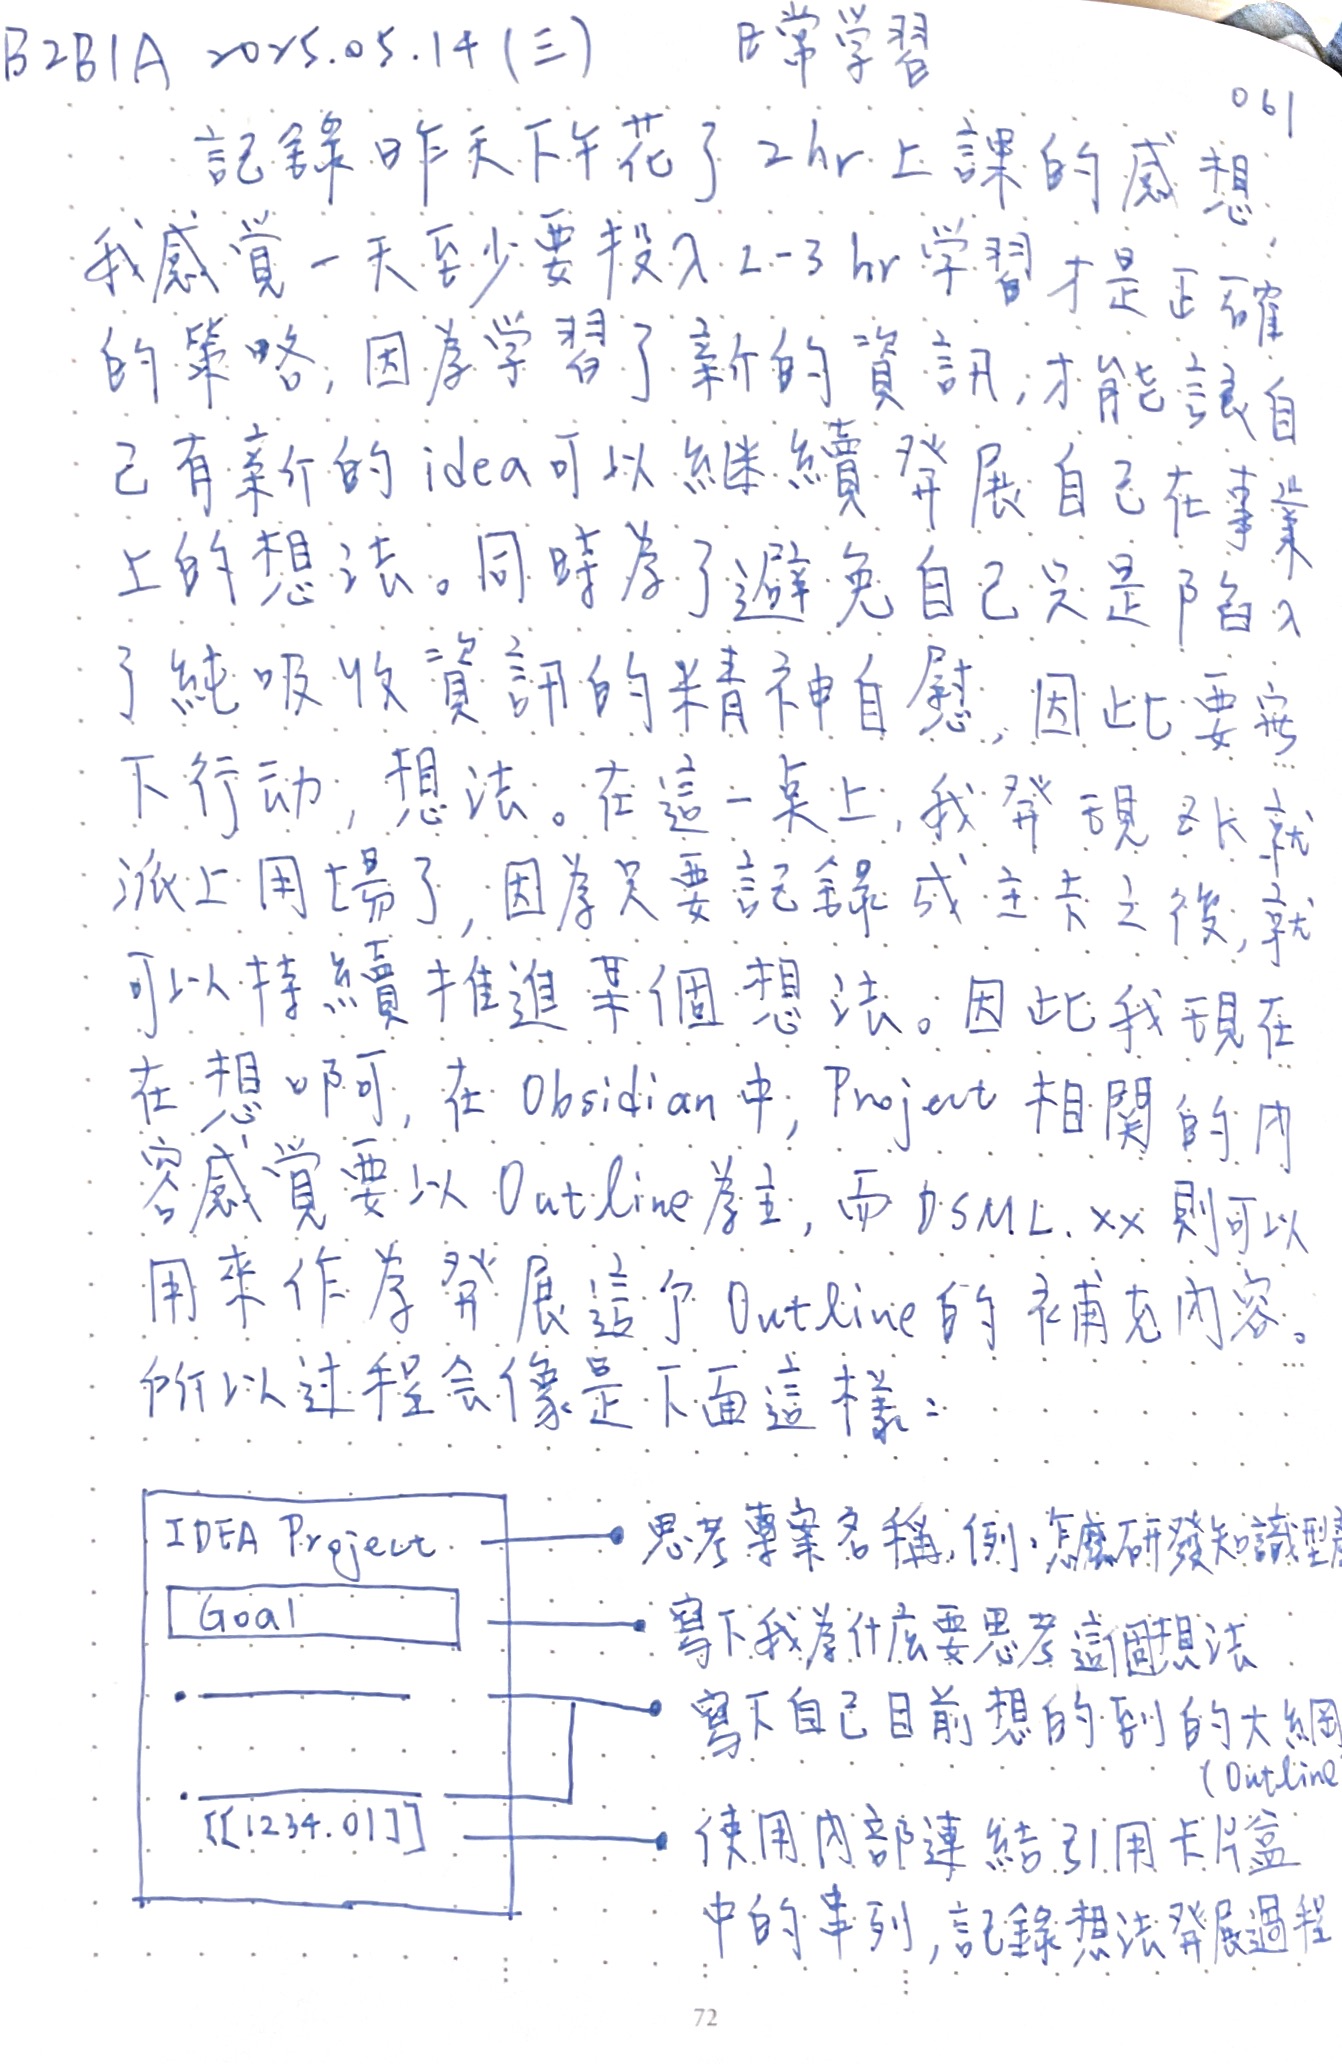 B2B1A 2025.05.14 (三) 日常学習
061
記錄昨天下午花了2hr上課的感想,
我感覚一天至少要投入2-3hr学習才是正確
的策略, 因為学習了新的資訊, 才能讓自
己有新的idea可以継續發展自己在事業
上的想法。同時為了避免自己只是陷入
了純吸收資訊的精神自慰, 因此要寫
下行动, 想法。在這一点上, 我發現ZK就
派上用場了, 因為只要記錄成主卡之後, 就
可以持續推進某個想法。因此我現在
在想啊, 在Obsidian中, Project相関的内
容感覚要以Outline為主, 而DSML.xx則可以
用來作為發展這个Outline的補充内容。
所以过程会像是下面這樣:
IDEA Project
思考專案名稱, 例: 怎麼研發知識型產
Goal
寫下我為什麼要思考這個想法
寫下自己目前想的到的大綱
(Outline
[[1234.01]]
使用内部連結引用卡片盒
中的串列, 記錄想法發展過程
72